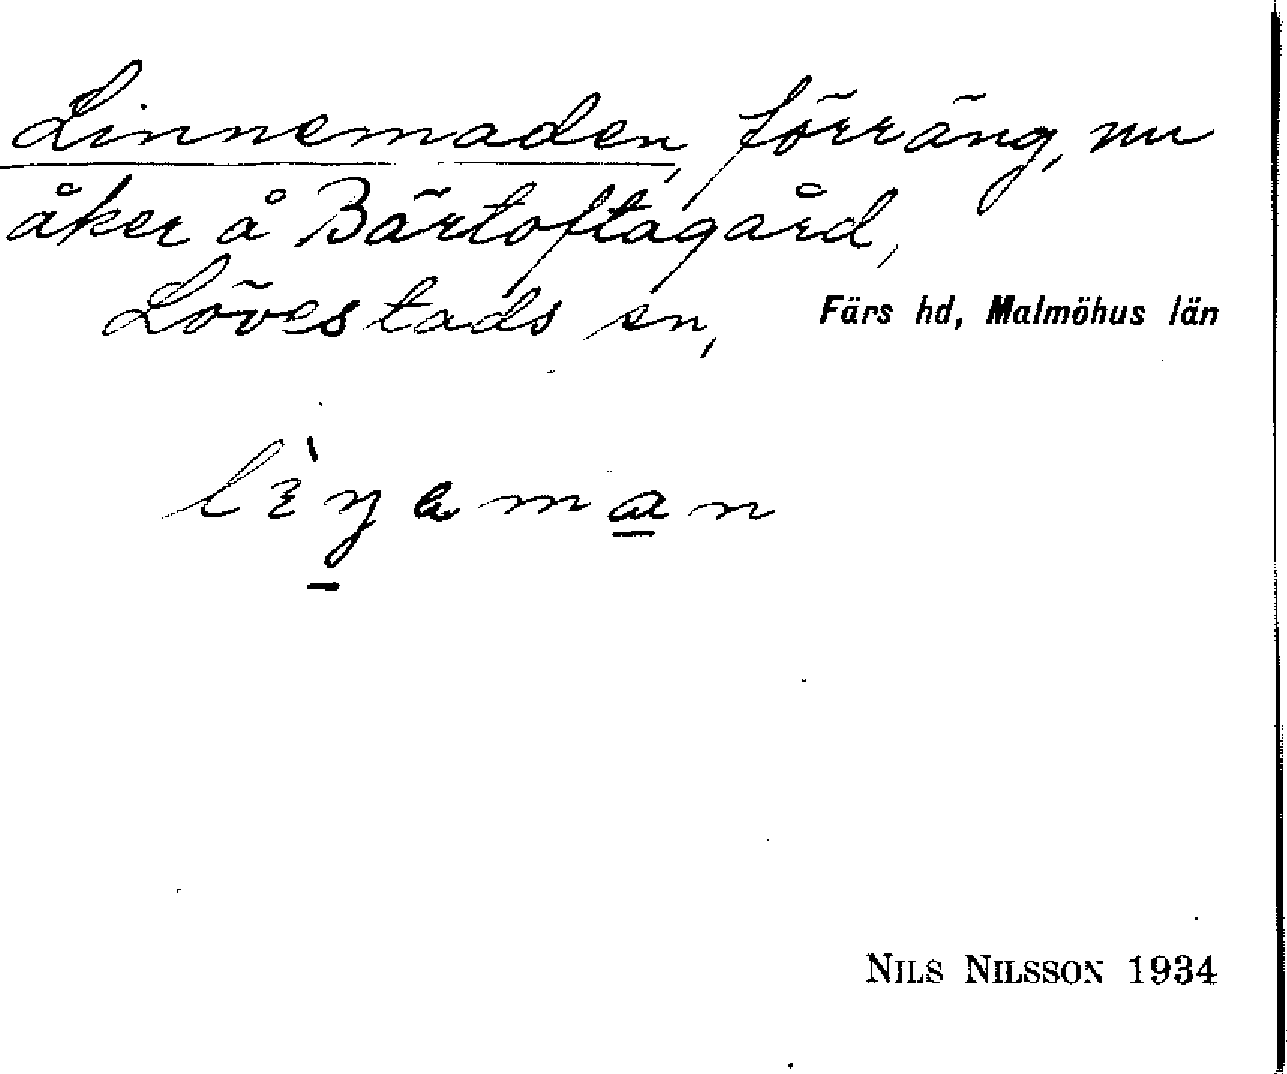 Linnemaden, förräng, nu
åker å Bärtoftagård,
Lövestads sn, Färs hd, Malmöhus län
NILS NILSSON 1934